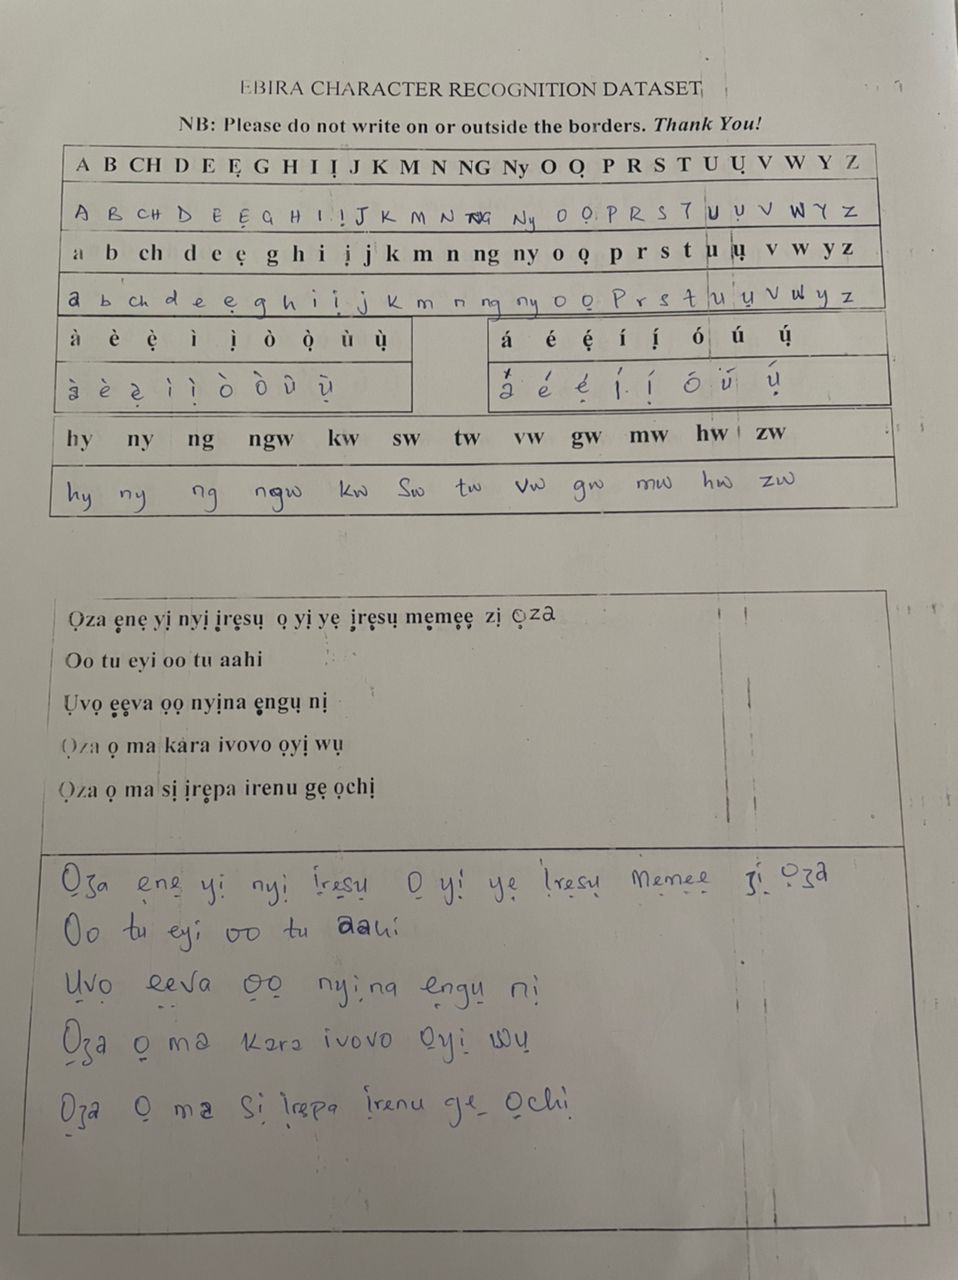 EBIRA CHARACTER RECOGNITION DATASET
NB: Please do not write on or outside the borders. Thank You!
A B CH D E Ẹ G H I Ị J K M N NG Ny O Ọ P R S T U Ụ V W Y Z
A B CH D E Ẹ G H I Ị J K M N NG Ny O Ọ P R S T U Ụ V W Y Z
a b ch d e ẹ g h i ị j k m n ng ny o ọ p r s t u ụ v w y z
a b ch d e ẹ g h i ị j k m n ng ny o ọ P r s t u ụ v w y z
à è ẹ̀ ì ị̀ ò ọ̀ ù ụ̀ á é ẹ́ í ị́ ó ú ụ́
à è ẹ̀ ì ị̀ ò ò ù ụ̀ á é ẹ́ í ị́ ó ú ụ́
hy ny ng ngw kw sw tw vw gw mw hw zw
hy ny ng ngw kw Sw tw vw gw mw hw zw
Ọza ẹnẹ yị nyị ịrẹsụ ọ yị yẹ ịrẹsụ mẹmẹẹ zị ọza
Oo tu eyi oo tu aahi
Ụvọ ẹẹva ọọ nyịna ẹngụ nị
Ọza ọ ma kara ivovo ọyị wụ
Ọza ọ ma sị ịrẹpa irenu gẹ ọchị
Ọza ẹnẹ yị nyị ịrẹsụ Ọ yị yẹ ịrẹsụ mẹmẹẹ zị ọza
Oo tu eyi oo tu aahi
Ụvọ ẹẹva ọọ nyịna ẹngụ nị
Ọza ọ ma kara ivovo ọyị wụ
Ọza ọ ma sị ịrẹpa irenu gẹ ọchị